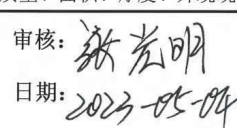 审核：张光明
日期：2023-05-04